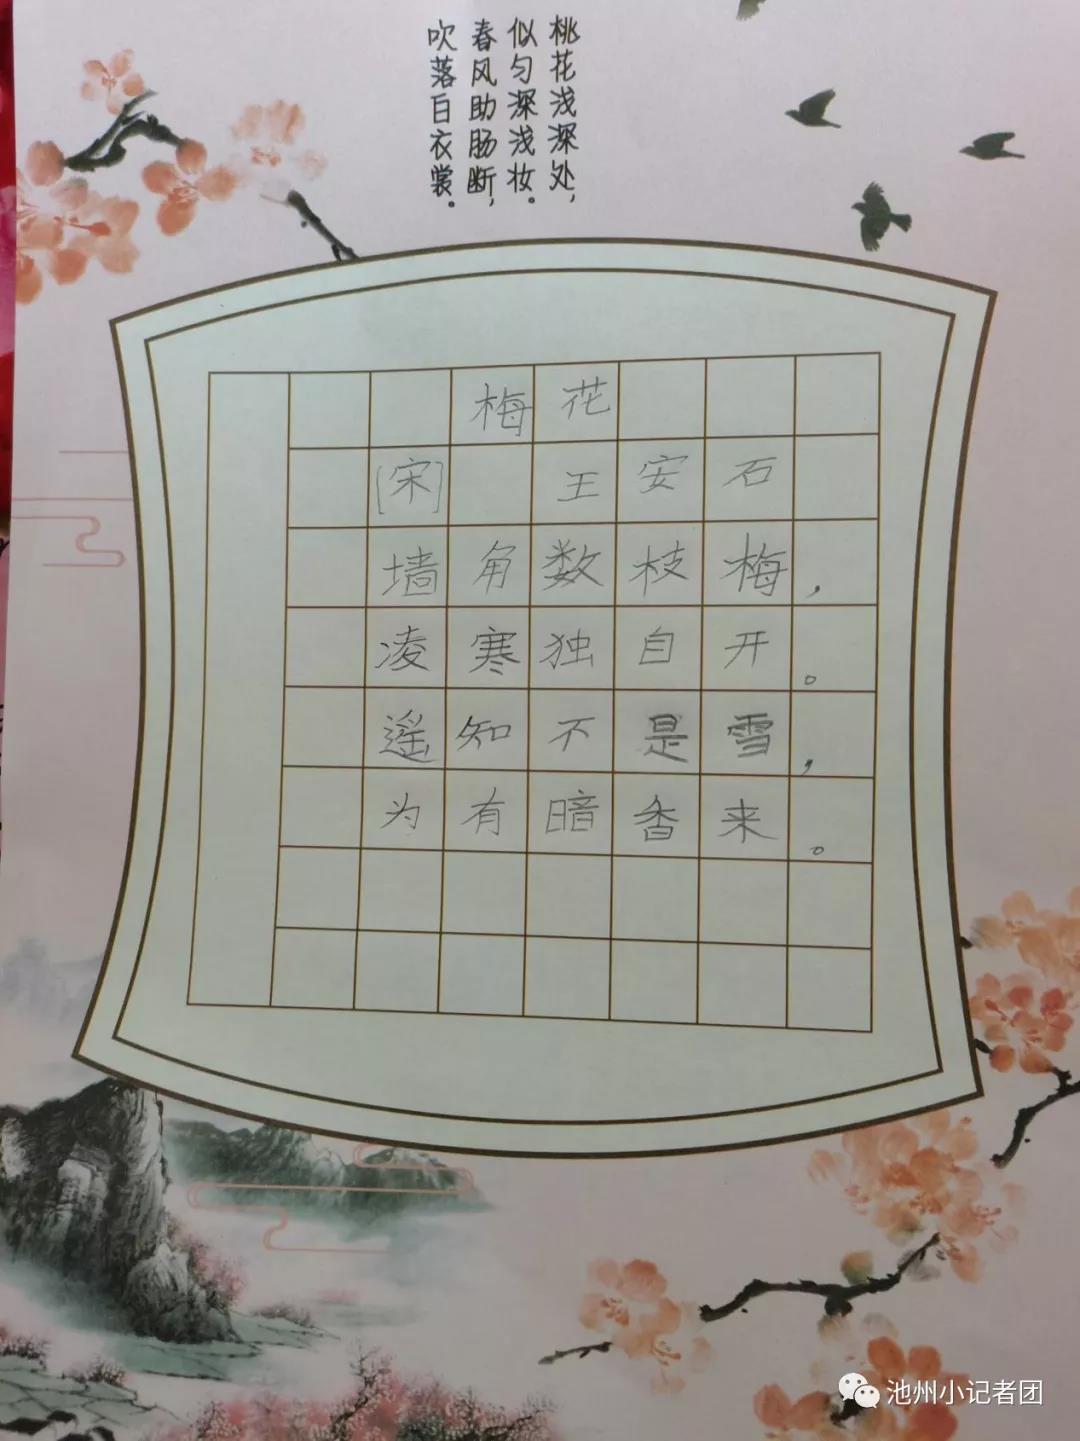 桃花浅深处，
似匀深浅妆。
春风助肠断，
吹落白衣裳。
梅花
[宋] 王安石
墙角数枝梅，
凌寒独自开。
遥知不是雪，
为有暗香来。
池州小记者团